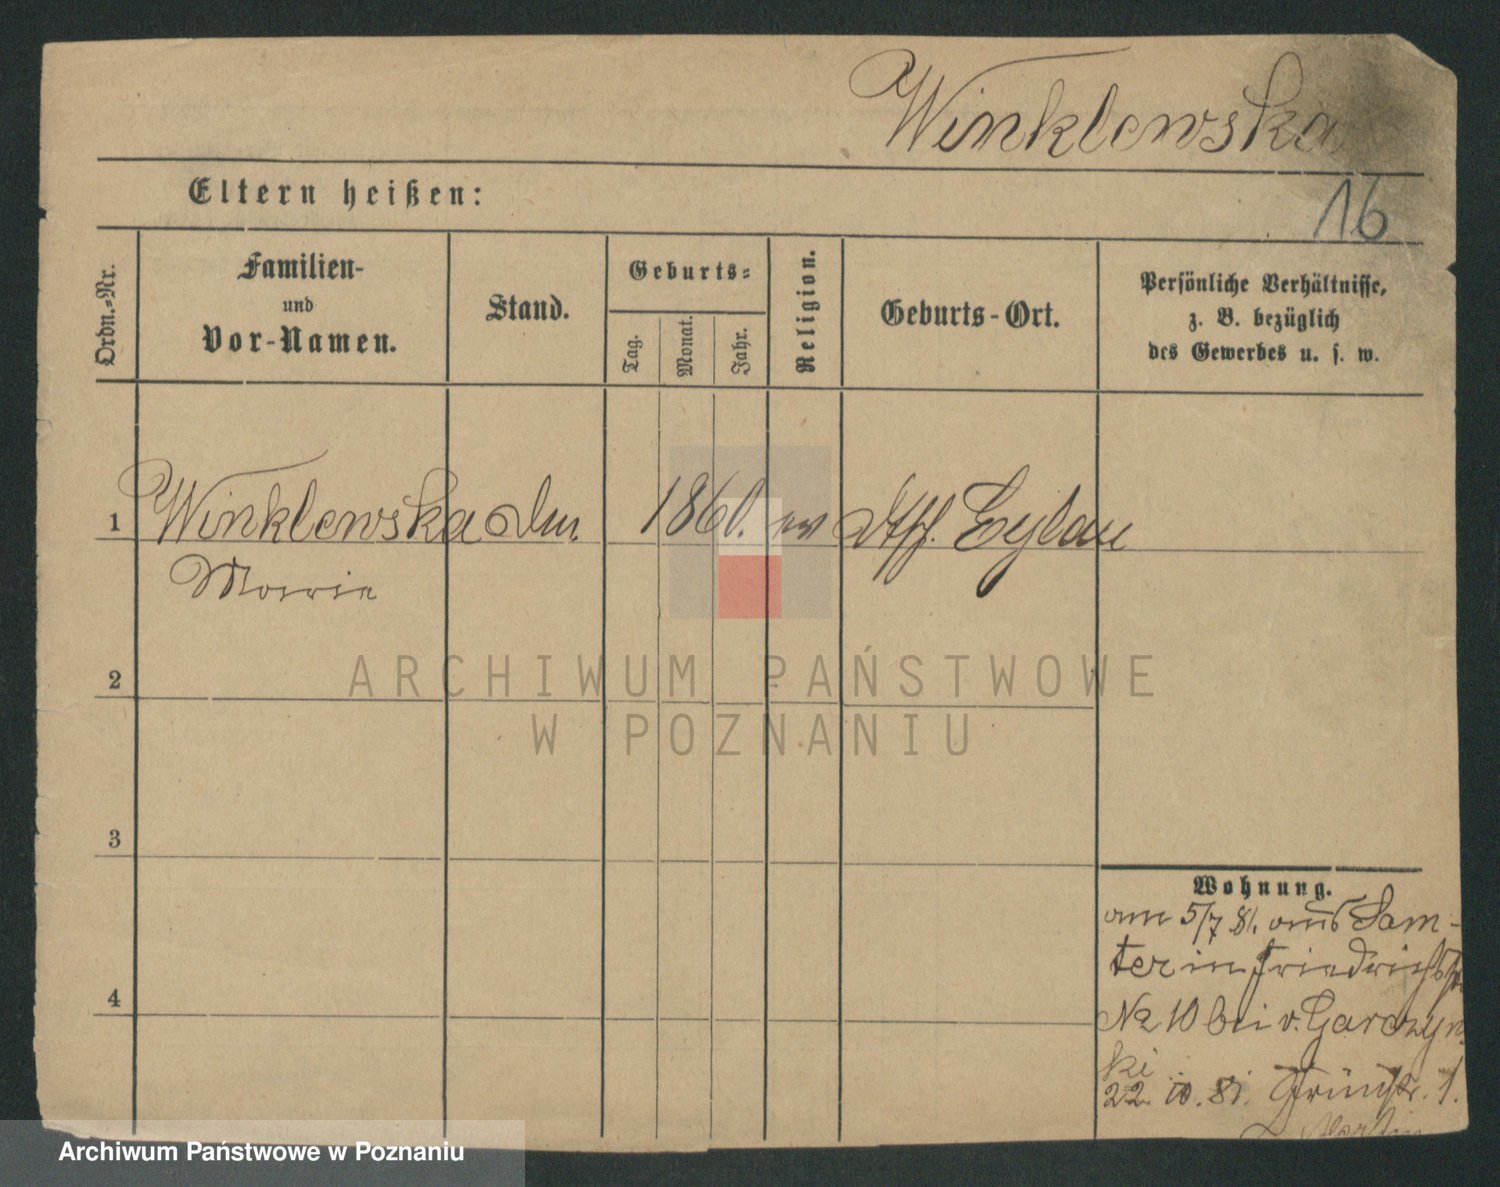 Winklewska
Eltern heißen:
16
Ordn.-Nr.
Familien-
und
Vor-Namen.
Stand.
Geburts-
Tag.
Monat.
Jahr.
Religion.
Geburts-Ort.
Persönliche Verhältnisse,
z. B. bezüglich
des Gewerbes u. s. w.
1 Winklewska 1860. ev Eylau
Marie
2
3
4
Wohnung.
am 5/7 81. aus Sam-
ter in Friedrichstr.
No 10 bei v. Garczyn
ki
22. 10. 81. Grünstr. 1.
ARCHIWUM PAŃSTWOWE
W POZNANIU
Archiwum Państwowe w Poznaniu